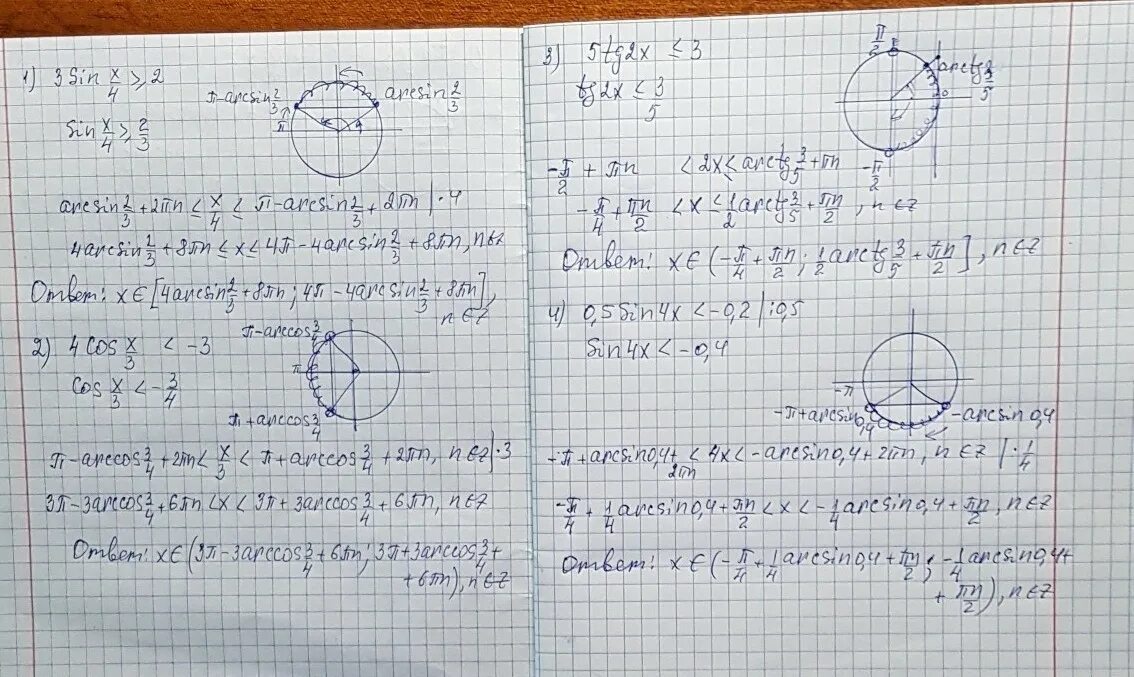 1) 3 sin x/4 ⩾ 2
π-arcsin 2/3
arcsin 2/3
π
sin x/4 ⩾ 2/3
arcsin 2/3 + 2πn ≤ x/4 ≤ π - arcsin 2/3 + 2πn | · 4
4arcsin 2/3 + 8πn ≤ x ≤ 4π - 4arcsin 2/3 + 8πn, n∈Z
Ответ: x∈[4arcsin 2/3 + 8πn; 4π - 4arcsin 2/3 + 8πn],
n∈Z
2) 4 cos x/3 < -3
π-arccos 3/4
π
cos x/3 < -3/4
π+arccos 3/4
π - arccos 3/4 + 2πn < x/3 < π + arccos 3/4 + 2πn, n∈Z | · 3
3π - 3arccos 3/4 + 6πn < x < 3π + 3arccos 3/4 + 6πn, n∈Z
Ответ: x∈(3π - 3arccos 3/4 + 6πn; 3π + 3arccos 3/4 +
+ 6πn), n∈Z
3) 5tg2x ≤ 3
π/2
arctg 3/5
0
tg2x ≤ 3/5
-π/2
-π/2 + πn < 2x ≤ arctg 3/5 + πn
-π/4 + πn/2 < x ≤ 1/2 arctg 3/5 + πn/2, n∈Z
Ответ: x∈(-π/4 + πn/2; 1/2 arctg 3/5 + πn/2], n∈Z
4) 0,5sin4x < -0,2 | :0,5
sin4x < -0,4
-π
-π+arcsin0,4
-arcsin0,4
-π + arcsin0,4 + 2πn < 4x < -arcsin0,4 + 2πn, n∈Z | · 1/4
-π/4 + 1/4 arcsin0,4 + πn/2 < x < -1/4 arcsin0,4 + πn/2, n∈Z
Ответ: x∈(-π/4 + 1/4 arcsin0,4 + πn/2; -1/4 arcsin0,4 +
+ πn/2), n∈Z